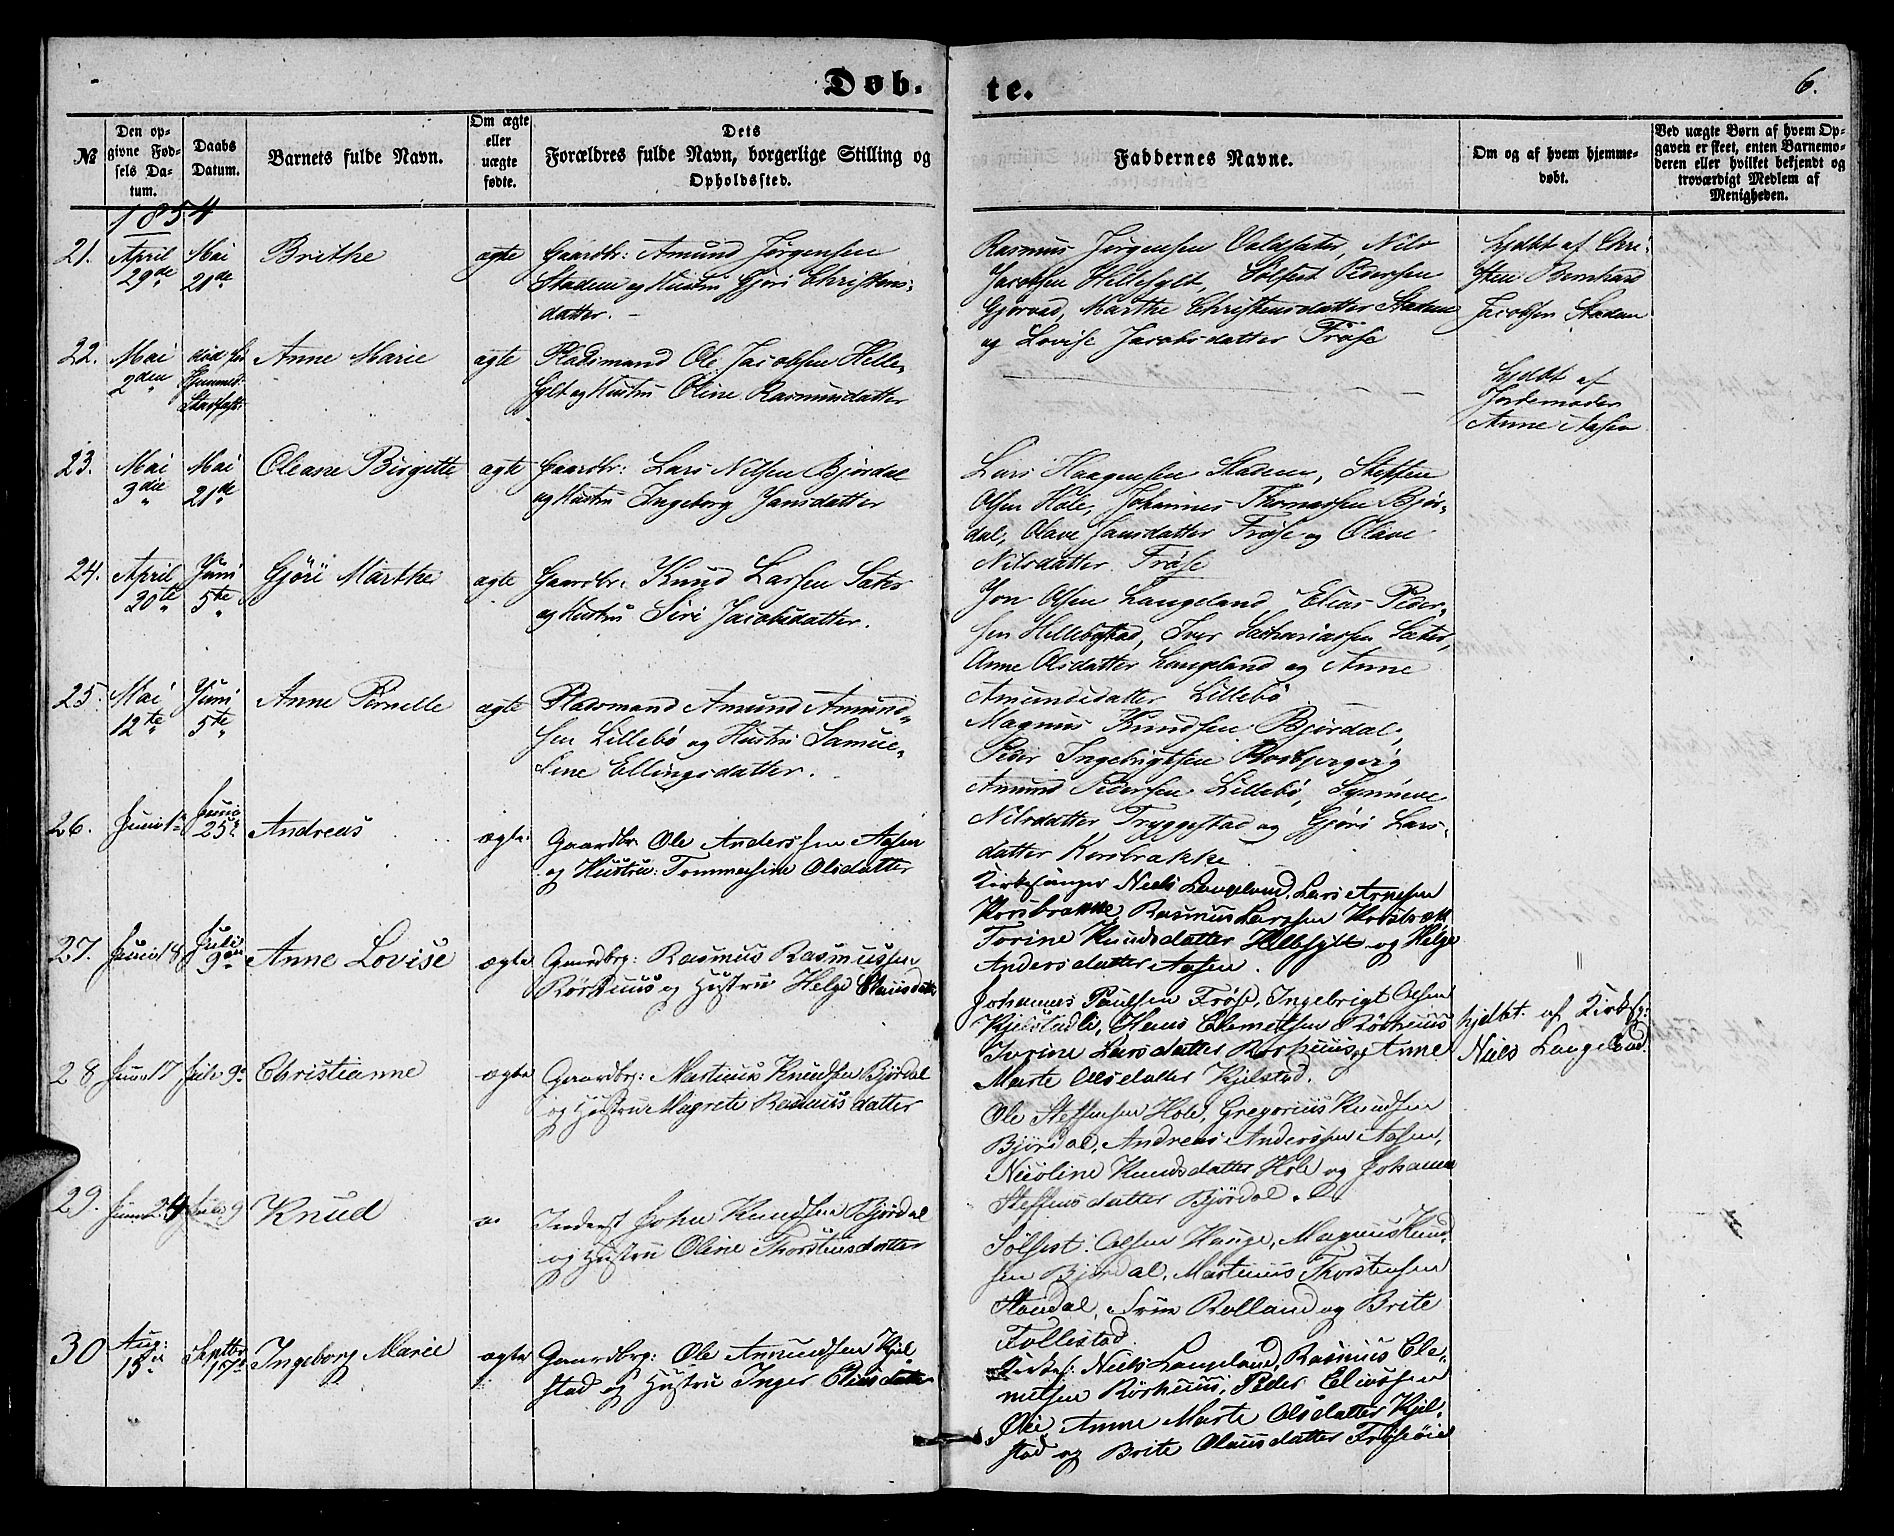 Døb-
te.
6.
№
Den op-
givne Fød-
sels Da-
tum.
Daabs
Datum.
Barnets fulde Navn.
Om ægte
eller
uægte
fødte.
Dets
Forældres fulde Navn, borgerlige Stilling og
Opholdssted.
Faddernes Navne.
Om og af hvem hjemme-
døbt.
Ved uægte Børn af hvem Op-
gaven er skeet, enten Barnemo-
deren eller hvilket bekjendt og
troværdigt Medlem af
Menigheden.
1854
21.
April
29de
Mai
21de
Brithe
ægte
Gaardbr: Amund Jørgensen
Staden og Hustru Gjøri Christens-
datter. -
Rasmus Jørgensen Valdsæter, Nils
Jacobsen Hellesylt, Sølfest Pedersen
Gjørvad, Marthe Christensdatter Staden
og Lovise Jacobsdatter Frøse
hjdøbt af Chri-
sten Bernhard
Jacobsen Staden
22.
Mai
2den
død før
Hjemmed:
Stadfæst:
Anne Marie
ægte
Pladsmand Ole Jacobsen Helle-
sylt og Hustru Oline Rasmusdatter
hjdøbt af
Jordemoder
Anne Aasen
23.
Mai
3die
Mai
21de
Oleane Birgitte
ægte
Gaardbr: Lars Nilsen Bjørdal
og Hustru Ingeborg Jansdatter
Lars Haagensen Staden, Steffen
Olsen Hole, Johannes Thomassen Bjør-
dal, Olave Jansdatter Frøse og Olave
Nilsdatter Frøse
24.
April
20de
Juni
5te
Gjøri Marthe
ægte
Gaardbr: Knud Larsen Sæter
og Hustru Siri Jacobsdatter.
Jon Olsen Langeland, Elias Peder-
sen Hellebostad, Iver Sachariassen Sæter,
Anne Olsdatter Langeland og Anne
Amundsdatter Lillebø
25.
Mai
12te
Juni
5te
Anne Pernelle
ægte
Pladsmand Amund Amund-
sen Lillebø og Hustru Samue-
line Ellingsdatter.
Magnus Knudsen Bjørdal,
Peder Ingebrigtsen
Amund Pedersen Lillebø, Synneve
Nilsdatter Tryggestad og Gjøri Lars-
datter Korsbrække
26.
Juni 1
Juni
25
Andreas
ægte
Gaardbr Ole Anderssen Aasen
og Hustru: Tommesine Olsdatter
Kirkesanger Niels Langeland, Lars Arnesen
Korsbrække, Rasmus Larssen Korsbræk
Torine Knudsdatter Hellesylt og Helge
Andersdatter Aasen.
27.
Juni 18
Juli
9
Anne Lovise
ægte
Gaardbrg: Rasmus Rasmussen
Rørhuus og Hustru Helge Clausdatt
Johannes Paulsen Frøse, Ingebrigt Olsen
Kjelstadli, Hans Clemetsen Rørhuus
Torine Larsdatter Rørhuus og Anne
Marte Olsdatter Kjelstad.
hjdbt. af Kirksg:
Niels Langeland
28
Juni 17
Juli 9
Christianne
ægte
Gaardbrg: Martinus Knudsen Bjørdal
og Hustru Magrete Rasmusdatter
Ole Steffensen Hole, Gregorius Knudsen
Bjørdal, Andreas Anderssen Aasen,
Nicoline Knudsdatter Hole og Johanne
Steffensdatter Bjørdal.
29.
Juni 24
Juli 9
Knud
Inderst John Knudsen Bjørdal
og Hustru Oline Thorstensdatter
Sølfest Olsen Hauge, Magnus Knud-
sen Bjørdal, Martinus Thorstensen
Stavdal, Rolland og Brite
Follestad
30
Aug:
15
Septbr
17
Ingeborg Marie
ægte
Gaardbrg: Ole Amundsen Kjel-
stad og Hustru Inger Eliasdatter
Kirkes: Niels Langeland, Rasmus Cle-
metsen Rørhuus, Peder Eliassen
Øie, Anne Marte Olsdatter Kjel-
stad og Brite Olausdatter Frøsøie